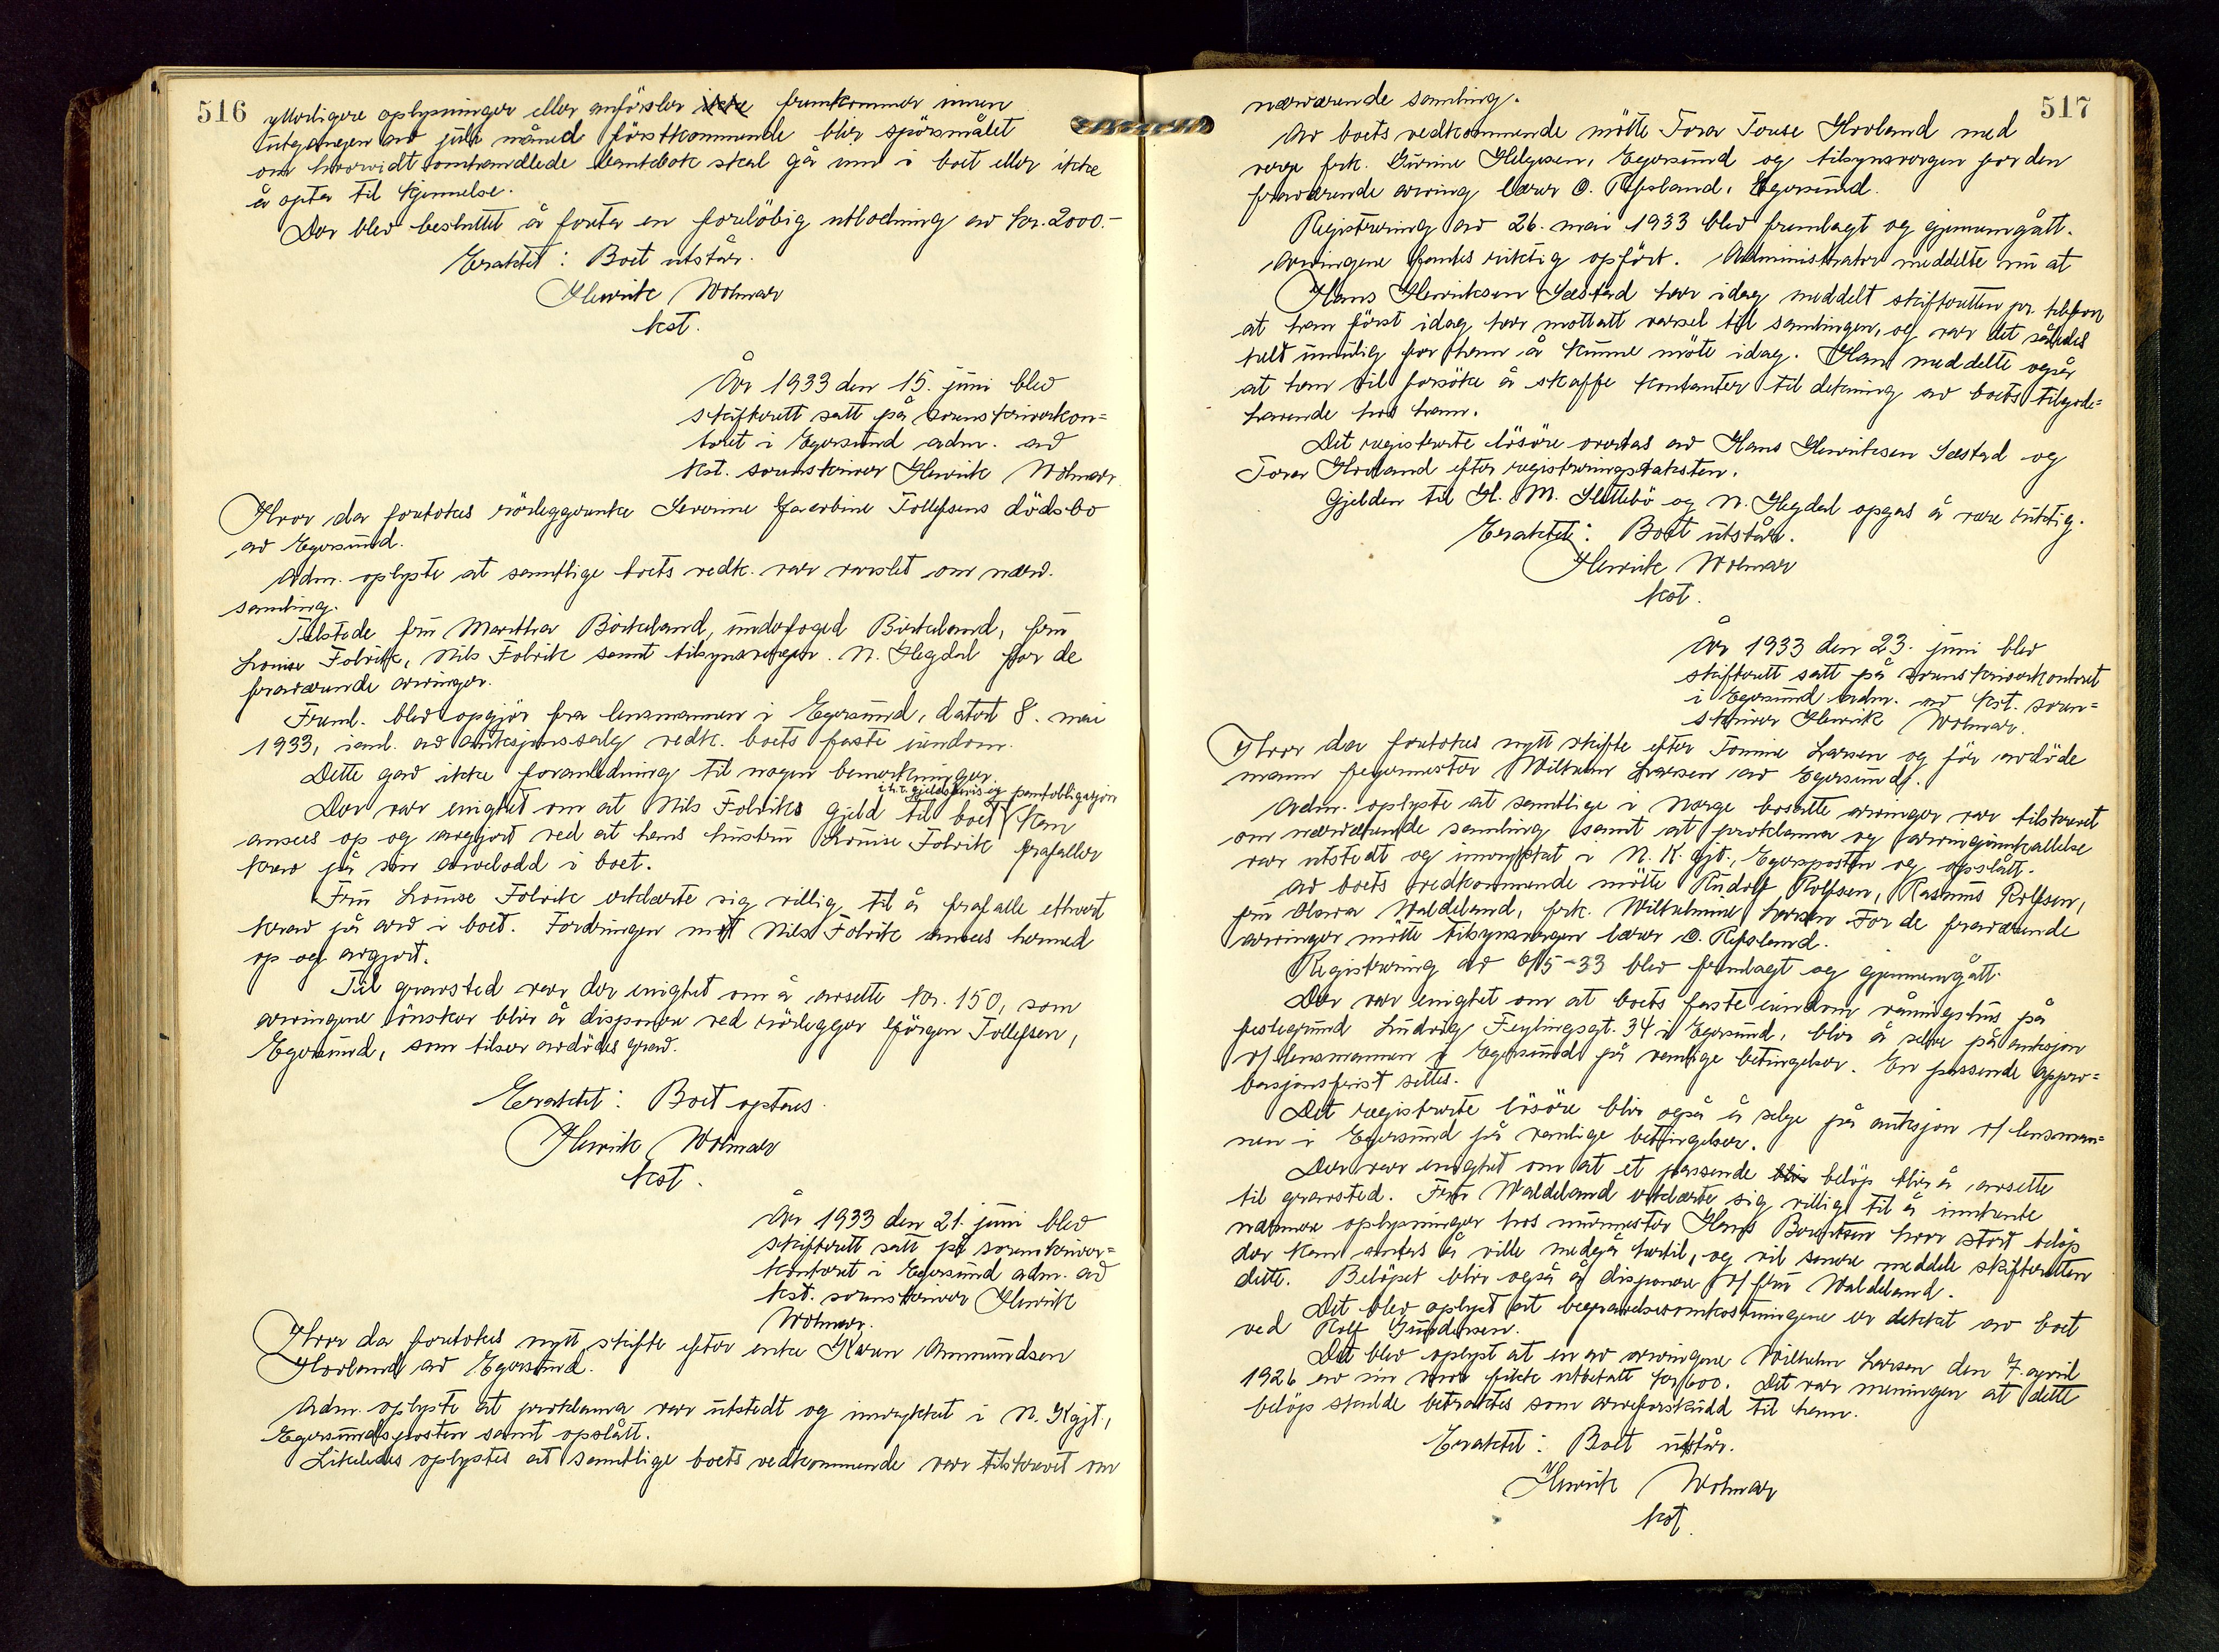 516
ytterligere oplysninger eller anförsler ikke fremkommer innen
utgangen av juli måned förstkommende blir spörsmålet
om hvorvidt omhandlede bankbok skal gå inn i boet eller ikke
å opta til kjennelse.
Der blev besluttet å foreta en foreløbig utlodning av kr. 2000.-
Eraktet: Boet utstår.
Henrik Wolmar
kst.
År 1933 den 15. juni blev
skifterett satt på sorenskriverkon=
toret i Egersund adm. av
kst. sorenskriver Henrik Wolmar
Hvor da foretokes rörleggerenke Severine Tollefsens dödsbo
av Egersund.
Adm. oplyste at samtlige boets vedk. var varslet om nærv.
samling.
Tilstede fru Martha Birkeland, underfoged Birkeland, fru
Louise Folvik, Nils Folvik samt tilsynsvergen N. Hegdal for de
fraværende arvinger.
Freml. blev opgjör fra lensmannen i Egersund, datert 8. mai
1933, i anl. av auksjonssalg vedk. boets faste eiendom.
Dette gav ikke foranledning til nogen bemerkninger.
Der var enighet om at Nils Folviks gjeld til boet i h.t. gjeldsbrev og pantobligasjon kan
ansees op og avgjort ved at hans hustru Louise Folvik frafaller
krav på sin arvelodd i boet.
Fru Louise Folvik erklærte sig villig til å frafalle ethvert
krav på arv i boet. Fordringen mot Nils Folvik ansees hermed
op og avgjort.
Til gravsted var der enighet om å avsette kr. 150, som
arvingene önsker blir å disponere ved rörlegger Jörgen Tollefsen,
Egersund, som tilser avdödes grav.
Eraktet: Boet optaes.
Henrik Wolmar
kst.
År 1933 den 21. juni blev
skifterett satt på sorenskriver=
kontoret i Egersund adm. av
kst. sorenskriver Henrik
Wolmar.
Hvor da foretokes nytt skifte efter enke Karen Ammundsen
Hovland av Egersund.
Adm. oplyste at proklama var utstedt og innrykket i N. Kgjt.,
Egersundsposten samt opslått.
Likeledes oplystes at samtlige boets vedkommende var tilskrevet om
517
nærværende samling.
Av boets vedkommende mötte Tora Hovland med
verge frk. Gurine Helgesen, Egersund og tilsynsvergen for den
fraværende arving lærer O. Refsland, Egersund.
Registrering av 26. mai 1933 blev fremlagt og gjennemgått.
Arvingene fantes riktig opfört. Administrator meddelte nu at
Hans Henriksen Sæstad har idag meddelt skifteretten pr. telefon
at han först idag har mottatt varsel til samlingen, og var det således
helt umulig for ham å kunne möte idag. Han meddelte også
at han vil forsöke å skaffe kontanter til dekning av boets tilgode=
havende hos ham.
Det registrerte lösöre overtas av Hans Henriksen Sæstad og
Tora Hovland efter registreringstaksten.
Gjelden til H. M. Slettebö og N. Hegdal opgas å være riktig.
Eraktet: Boet utstår.
Henrik Wolmar
kst.
År 1933 den 23. juni blev
skifterett satt på sorenskriverkontoret
i Egersund adm. av kst. soren=
skriver Henrik Wolmar.
Hvor da foretokes nytt skifte efter Tomine Larsen og för avdöde
mann Wilhelm Larsen av Egersund.
Adm. oplyste at samtlige i Norge bosatte arvinger var tilskrevet
om nærværende samling samt at proklama og arvinginnkallelse
var utstedt og innrykket i N. K. gjt., Egersposten og opslått.
Av boets vedkommende mötte Rudolf Rolfsen, Rasmus Rolfsen,
fru Waldeland, frk. Wilhelmine Larsen For de fraværende
arvinger mötte tilsynsvergen lærer O. Refsland.
Registrering av 6/5-33 blev fremlagt og gjennemgått.
Der var enighet om at boets faste eiendom våningshus på
festegrund Ludvig Feylingsgt. 34 i Egersund, blir å selge på auksjon
v/ lensmannen i Egersund på vanlige betingelser. En passende appro=
basjonsfrist settes.
Det registrerte lösöre blir også å selge på auksjon v/ lensman=
nen i Egersund på vanlige betingelser.
Der var enighet om at et passende blir belöp blir å avsette
til gravsted. Fru Waldeland erklærte sig villig til å innhente
nærmere oplysninger hos murmester Hans Berentsen hvor stort belöp
der kan antas å ville medgå hertil, og vil senere meddele skifteretten
dette. Belöpet blir også å disponere v/ fru Waldeland.
Det blev oplyst at begravelsesomkostningene er dekket av boet
ved Rolf Gundersen.
Det blev oplyst at en av arvingene Wilhelm Larsen den 7. april
1926 av sin mor fikk utbetalt kr. 600. Det var meningen at dette
belöp skulde betraktes som arveforskudd til ham.
Eraktet: Boet utstår.
Henrik Wolmar
kst.